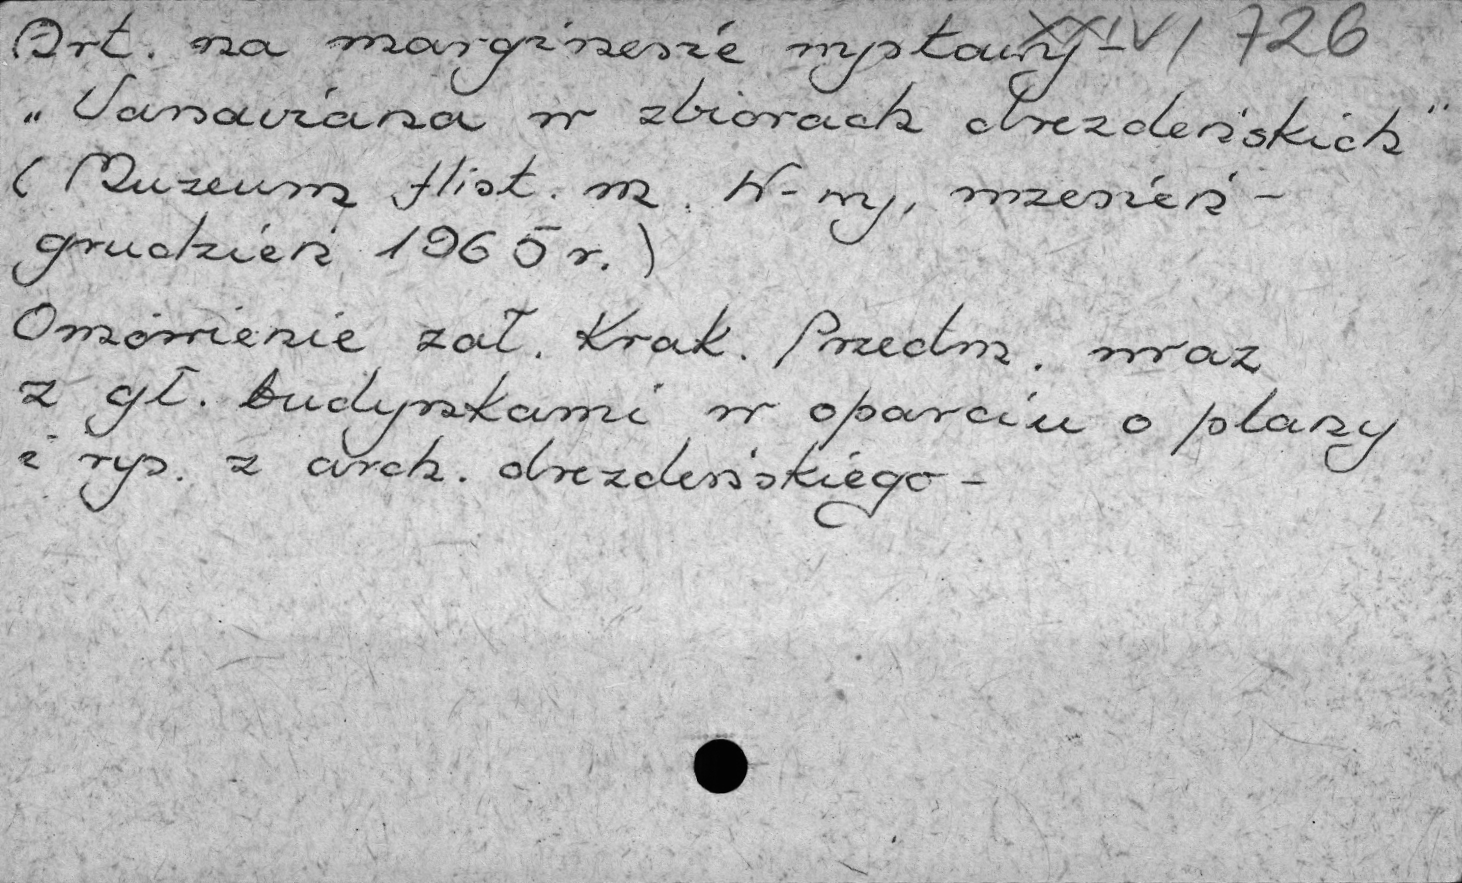 XXIV/726
Art. na marginesie wystawy -
„Varsaviana w zbiorach drezdeńskich"
(Muzeum Hist. m. W-wy, wrzesień -
grudzień 1965 r.)
Omówienie zał. Krak. Przedm. wraz
z gł. budynkami w oparciu o plany
i rys. z arch. drezdeńskiego -